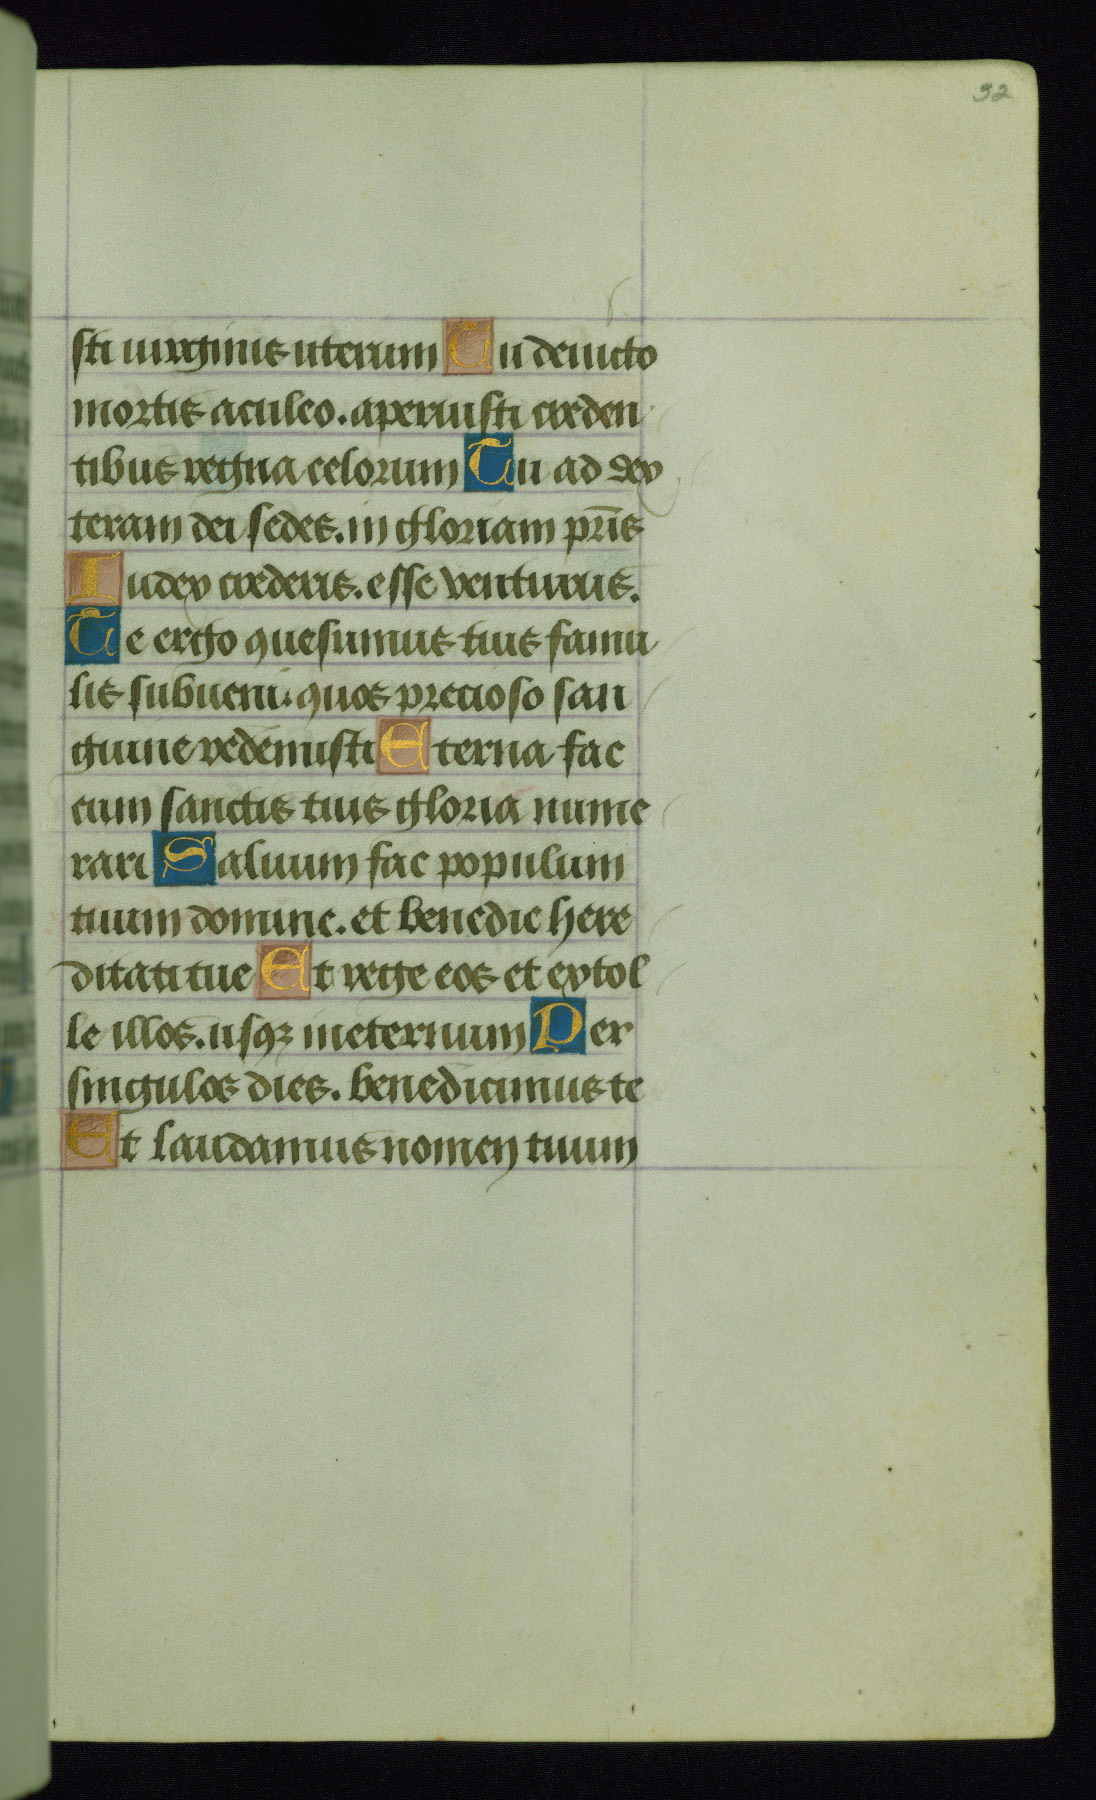 32
sti uirginis uterum Tu deuicto
mortis aculeo. aperuisti creden
tibus regna celorum Tu ad dex
teram dei sedes. in gloriam pr̄is
Iudex crederis. esse venturus.
Te ergo quesumus tuis famu
lis subueni. quos precioso san
guine redemisti Eterna fac
cum sanctis tuis gloria nume
rari Saluum fac populum
tuum domine. et benedic here
ditati tue Et rege eos et extol
le illos. usqꝫ ineternum Per
singulos dies. benedicimus te
Et laudamus nomen tuum